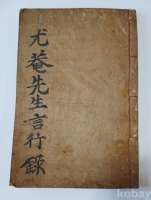 尤菴先生言行錄
kobay